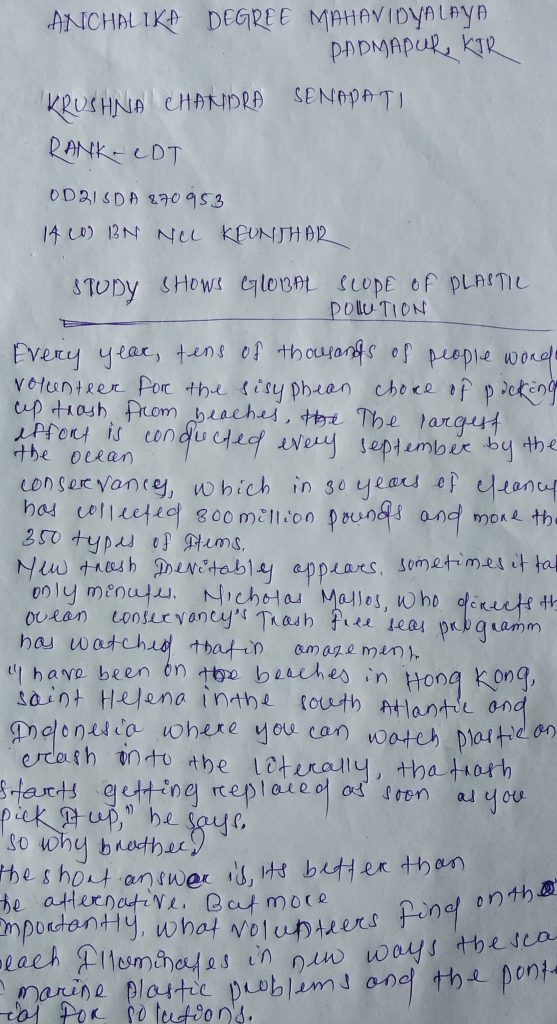 ANCHALIKA DEGREE MAHAVIDYALAYA
PADMAPUR, KJR
KRUSHNA CHANDRA SENAPATI
RANK - CDT
OD21SDA 870953
14 (O) BN NCC KEONJHAR
STUDY SHOWS GLOBAL SCOPE OF PLASTIC
POLLUTION
Every year, tens of thousands of people
volunteer for the sisyphean chore of picking
up trash from beaches. The largest
effort is conducted every september by the
the ocean
conservancy, which in 30 years of
has collected 800 million pounds and more
350 types of items.
New trash inevitably appears. sometimes it
only minutes. Nicholas Mallos, who directs
ocean conservancy's Trash free seas programm
has watched that in amazement.
"I have been on the beaches in Hong Kong,
saint Helena in the south Atlantic and
Indonesia where you can watch plastic
crash into the literally, tha trash
starts getting replaced as soon as you
pick it up," he says.
so why brother?
the short answer is, its better than
the alternative. But more
importantly, what volunteers find on the
beach illuminates in new ways the
marine plastic problems and the
for solutions.